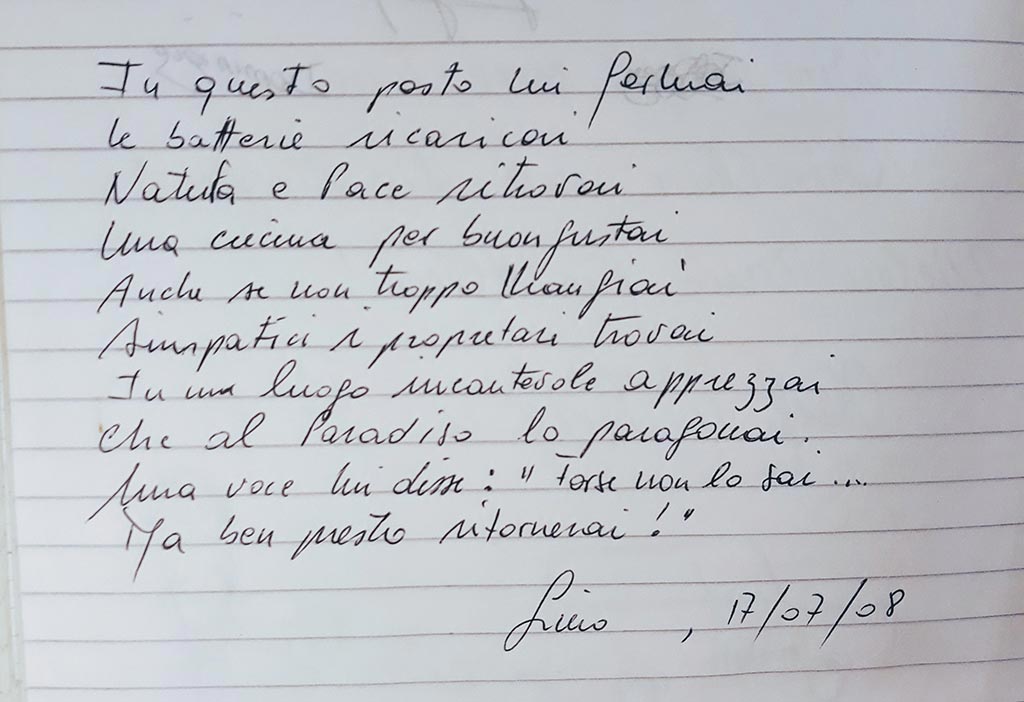 In questo posto mi fermai
le batterie ricaricai
Natura e Pace ritrovai
Una cucina per buongustai
Anche se non troppo mangiai
Simpatici i proprietari trovai
In un luogo incantevole apprezzai
Che al Paradiso lo paragonai.
Una voce mi disse: "Forse non lo sai...
Ma ben presto ritornerai!"
, 17/07/08